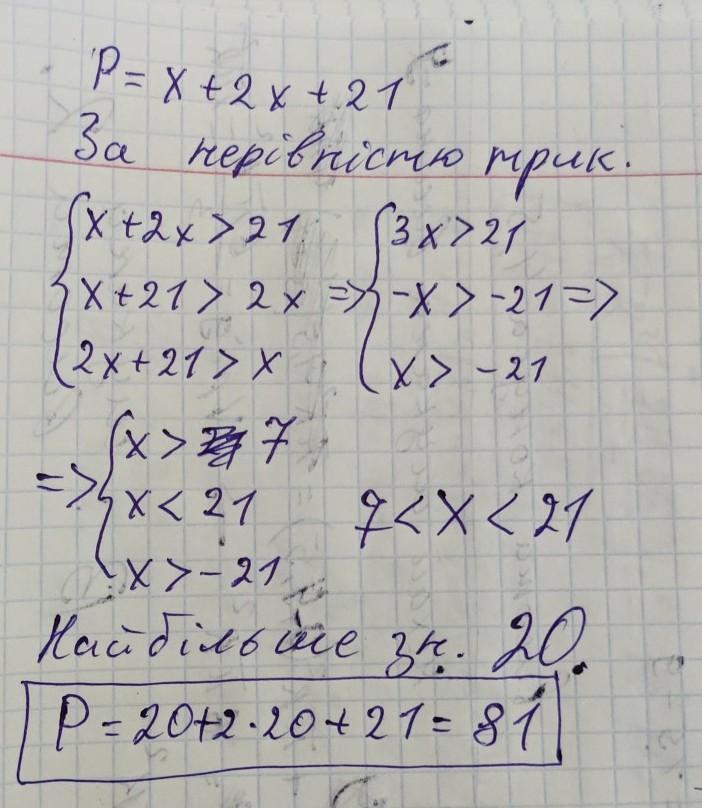 P = x + 2x + 21
За нерівністю трик.
{ x + 2x > 21 { 3x > 21
{ x + 21 > 2x => { -x > -21 =>
{ 2x + 21 > x { x > -21
{ x > 7
=> { x < 21 7 < x < 21
{ x > -21
Найбільше зн. 20.
P = 20+2·20+21 = 81